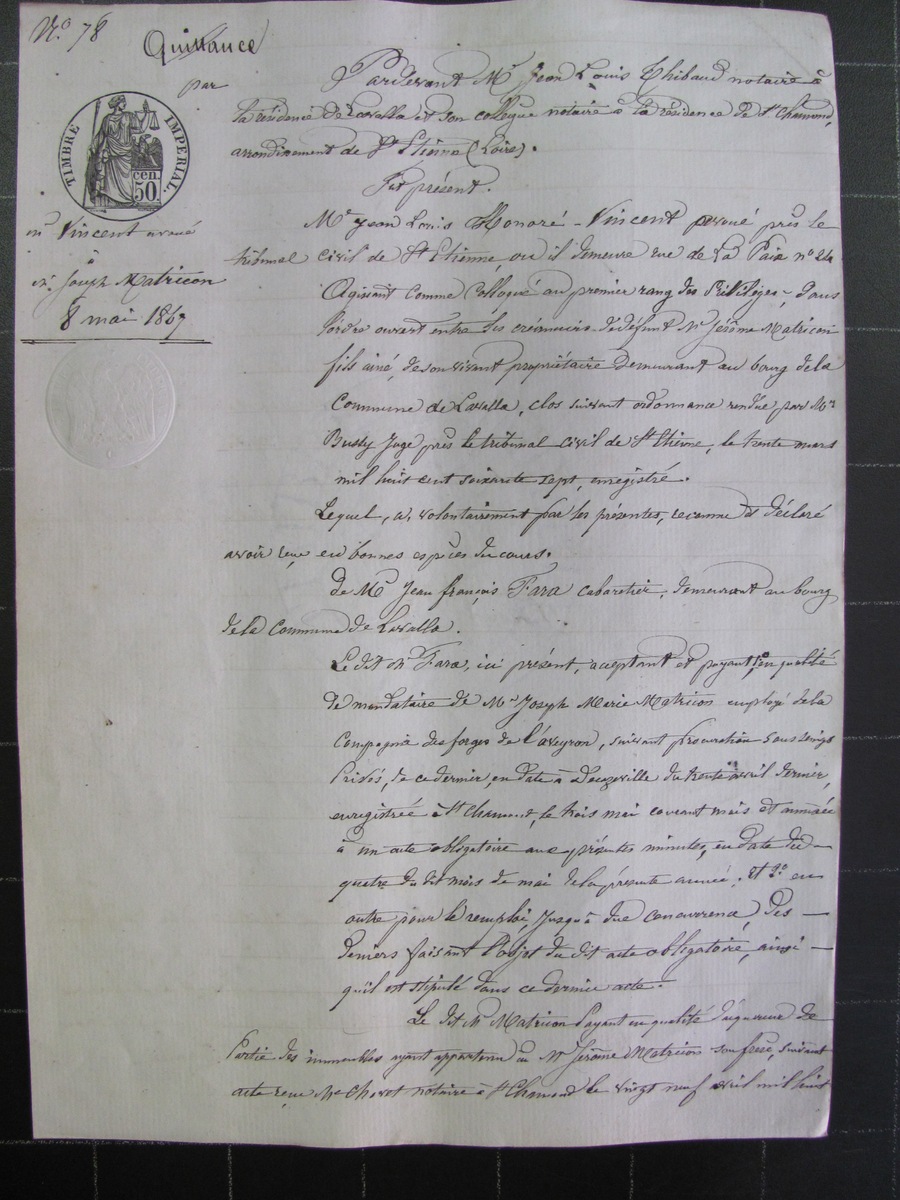 No 78
Quittance
par
TIMBRE IMPERIAL.
cen.
50.
mr Vincent avoué
à
mr Joseph Matricon
8 mai 1867
Pardevant Me Jean Louis Thibaud notaire à
la résidence de Lavalla et son collègue notaire à la résidence de St Chamond,
arrondissement de St Etienne (Loire).
Fut présent.
Me Jean Louis Honoré Vincent avoué près le
tribunal civil de St Etienne, ou il demeure rue de la Paix no 24
Agissant comme Colloqué au premier rang des Privilèges, dans
l'ordre ouvert entre les créanciers de défunt Mr Jérôme Matricon
fils ainé, de son vivant propriétaire demeurant au bourg de la
Commune de Lavalla, clos suivant ordonnance rendue par Mr
Bussy Juge près le tribunal civil de St Etienne, le trente mars
mil huit cent soixante sept, enregistré.
Lequel, a, volontairement par les présentes, reconnu et déclaré
avoir reçu en bonnes espèces du cours.
de Mr Jean françois Fara cabaretier, demeurant au bourg
de la Commune de Lavalla.
Le dit Mr Fara, ici présent, aceptant et payant, en qualité
de mandataire de Mr Joseph Marie Matricon employé de la
Compagnie des forges de l'aveyron, suivant procuration sous seings
Privés, de ce dernier, en date à Decazeville du trente avril dernier,
enregistrée à St Chamond, le trois mai courant mois et annéxée
à un acte obligatoire aux présentes minutes, en date du
quatre du dit mois de mai de la présente année; et 2o en
outre pour le remploi, jusqu'à due concurrence, des
deniers faisant l'objet du dit acte obligatoire, ainsi
qu'il est stipulé dans ce dernier acte.
Le dit Mr Matricon Payant en qualité d'aquereur de
Partie des immeubles ayant appartenu à Mr Jérôme Matricon son frère, suivant
acte reçu Me Chovet notaire à St Chamond le vingt neuf avril mil huit